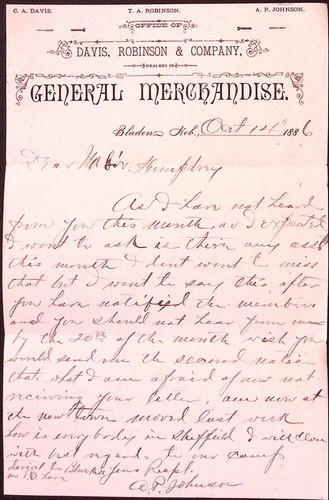 C. A. DAVIS. T. A. ROBINSON. A. P. JOHNSON.
OFFICE OF
DAVIS, ROBINSON & COMPANY,
DEALERS IN
GENERAL MERCHANDISE.
Bladen, Neb., Oct 14" 1886
Dear Humphrey
As I have not heard
from you this month, as I expected
I want to ask is there any ass
this month I dont want to miss
that but I want to say this, after
you have notified the members
and you should not hear from me
by the 20th of the month wish you
would send me the second notice
that what I am afraid of now not
receiving your letter. am now at
the new town moved last week
how is everybody in Sheffield I will close
with best regard. to our camp
A. P. Johnson